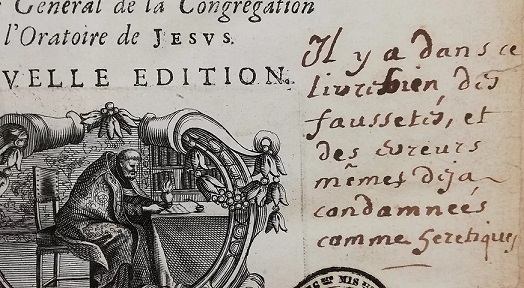 General de la Congregation
l'Oratoire de JESVS.
VELLE EDITION.
Il y a dans ce
livre bien des
faussetés, et
des erreurs
mêmes deja
condamneés
comme heretiques
MIS